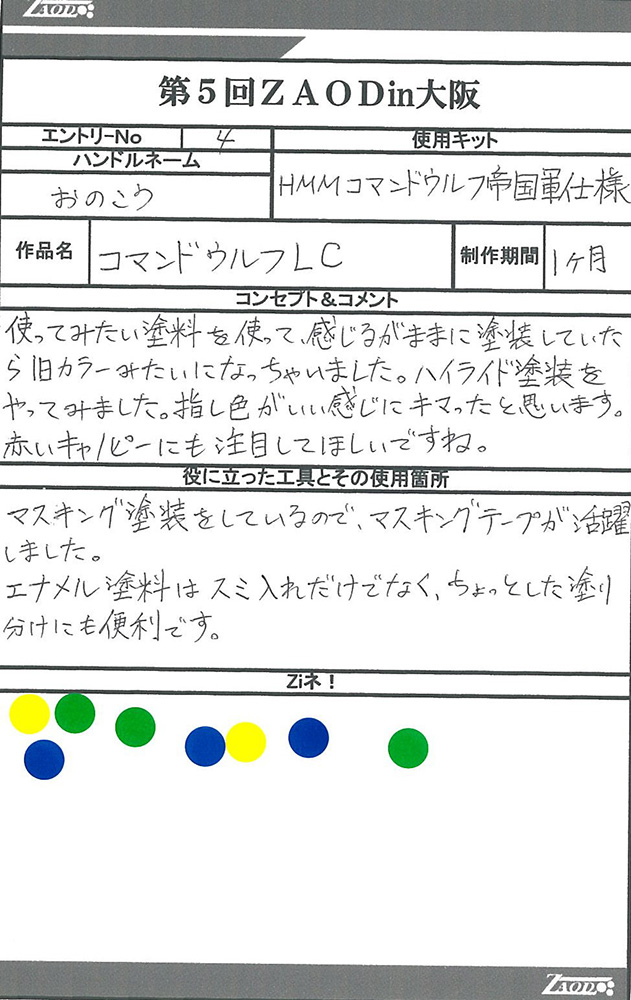 ZAOD
第5回ZAODin大阪
エントリーNo 4
使用キット
ハンドルネーム
おのこう
HMMコマンドウルフ帝国軍仕様
作品名 コマンドウルフLC 制作期間 1ヶ月
コンセプト&コメント
使ってみたい塗料を使って、感じるがままに塗装していた
ら旧カラーみたいになっちゃいました。ハイライド塗装を
やってみました。指し色がいい感じにキマったと思います。
赤いキャノピーにも注目してほしいですね。
役に立った工具とその使用箇所
マスキング塗装をしているので、マスキングテープが活躍
しました。
エナメル塗料はスミ入れだけでなく、ちょっとした塗り
分けにも便利です。
Ziネ!
ZAOD